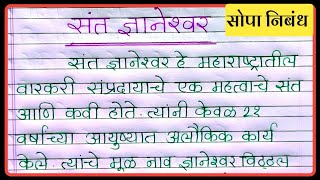 संत ज्ञानेश्वर
सोपा निबंध
संत ज्ञानेश्वर हे महाराष्ट्रातील
वारकरी संप्रदायाचे एक महत्वाचे संत
आणि कवी होते. त्यांनी केवळ २१
वर्षाच्या आयुष्यात अलौकिक कार्य
केले. त्यांचे मूळ नाव ज्ञानेश्वर विठ्ठल